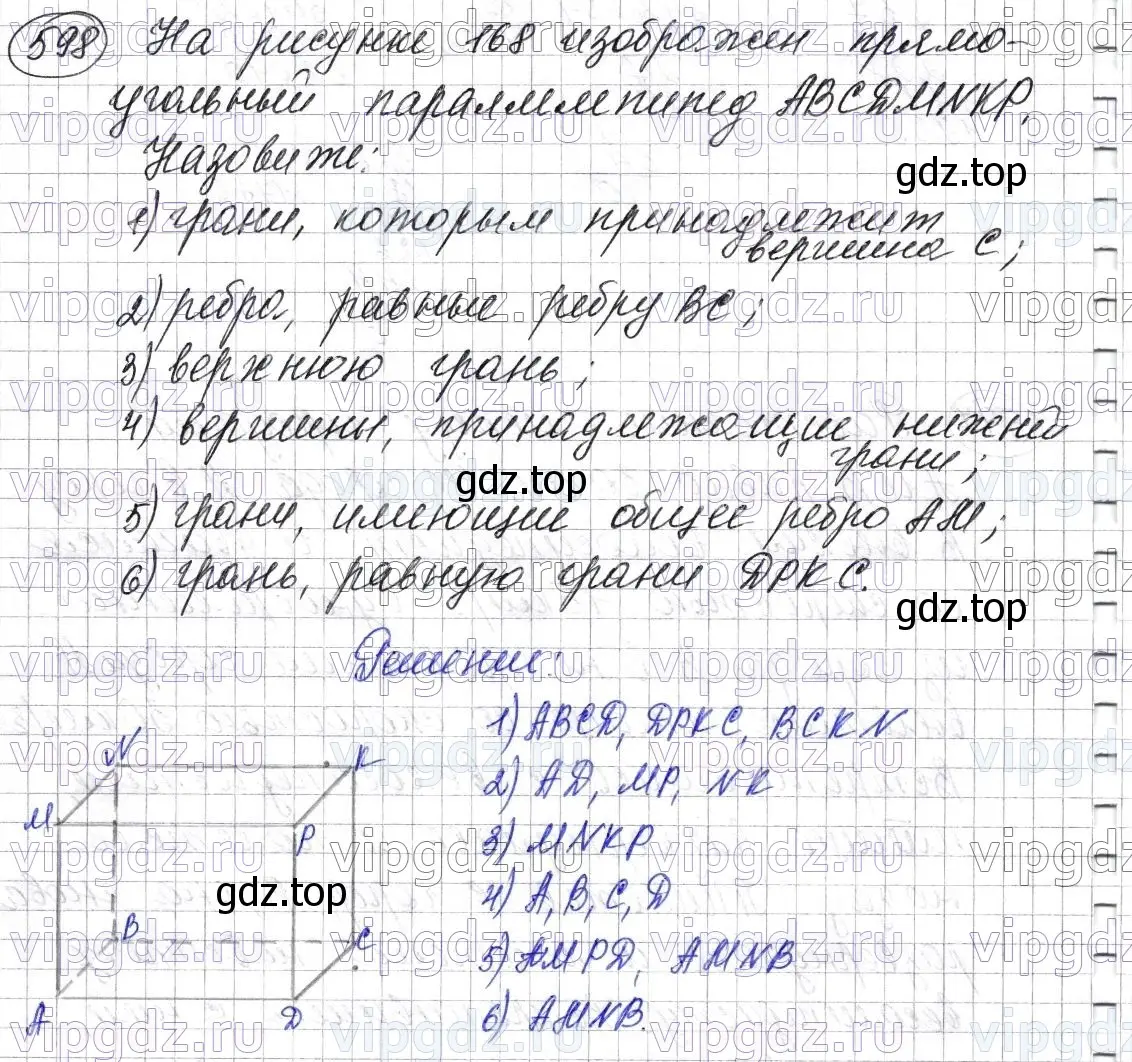 598 На рисунке 168 изображен прямо-
угольный параллелепипед ABCDMNKP.
Назовите:
gdz.top
1) грани, которым принадлежит
вершина C;
2) ребра, равные ребру BC;
3) верхнюю грань;
4) вершины, принадлежащие нижней
грани;
gdz.top
5) грани, имеющие общее ребро AM;
6) грань, равную грани DPKC.
gdz.top
Решение:
1) ABCD, DPKC, BCKN
2) AD, MP, NK
3) MNKP
4) A, B, C, D
5) AMPD, AMNB
6) AMNB.
N
K
M
P
gdz.top
B
C
A
D
vipgdz.ru